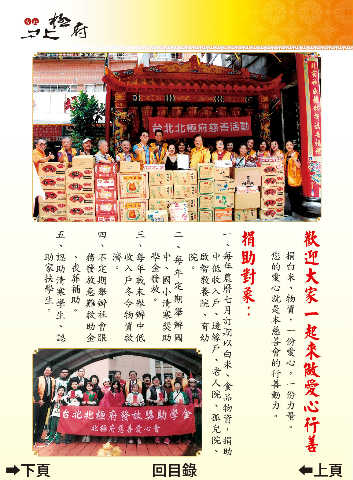 北極府
台北北極府慈善活動
歡迎大家一起來做愛心行善
捐白米、物資，一份愛心。一份力量。
您的愛心就是本慈善會的行善動力。
捐助對象：
一、每年農曆七月訂認以白米、食品物資，捐助
中低收入戶、邊緣戶、老人院、孤兒院、
啟智教養院、育幼
院。
二、每年定期舉辦國
中、國小清寒獎助
學金發放。
三、每年歲末舉辦中低
收入戶冬令物資救
濟。
四、不定期舉辦社會服
務發放急難救助金
、喪葬補助。
五、認助清寒學生、認
助家扶學生。
台北北極府發放獎助學金
北極府慈善愛心會
➡下頁
回目錄
⬅上頁